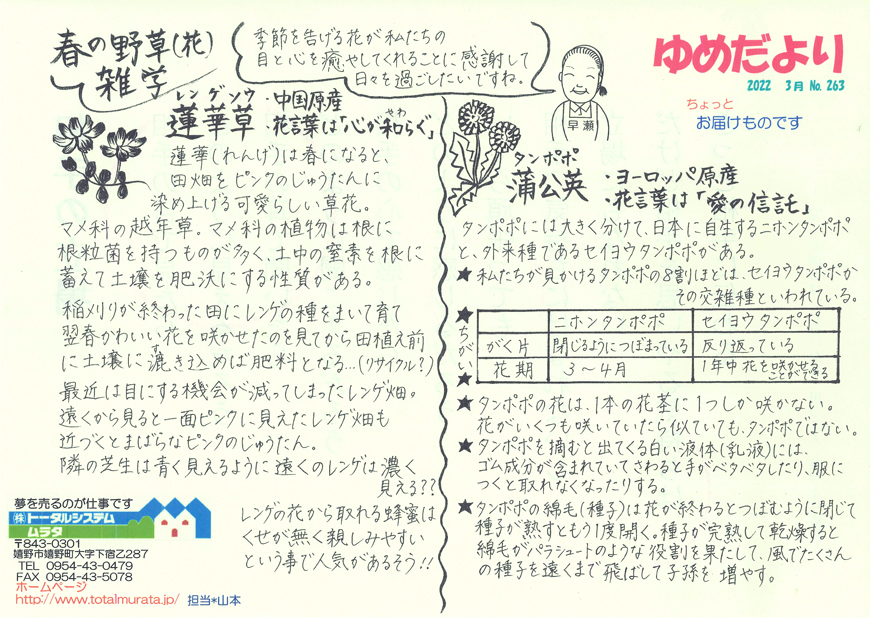 春の野草(花)
雑学
季節を告げる花が私たちの
目と心を癒やしてくれることに感謝して
日々を過ごしたいですね。
早瀬
ゆめだより
2022 3月 No. 263
ちょっと
お届けものです
レンゲソウ
蓮華草
・中国原産
・花言葉は「心が和らぐ」
やわ
蓮華(れんげ)は春になると、
田畑をピンクのじゅうたんに
染め上げる可愛らしい草花。
マメ科の越年草。マメ科の植物は根に
根粒菌を持つものが多く、土中の窒素を根に
蓄えて土壌を肥沃にする性質がある。
稲刈りが終わった田にレンゲの種をまいて育て
翌春かわいい花を咲かせたのを見てから田植え前
に土壌に漉き込めば肥料となる…(リサイクル?)
す
最近は目にする機会が減ってしまったレンゲ畑。
遠くから見ると一面ピンクに見えたレンゲ畑も
近づくとまばらなピンクのじゅうたん。
隣の芝生は青く見えるように遠くのレンゲは濃く
見える??
レンゲの花から取れる蜂蜜は
くせが無く親しみやすい
という事で人気があるそう!!
タンポポ
蒲公英
・ヨーロッパ原産
・花言葉は「愛の信託」
タンポポには大きく分けて、日本に自生するニホンタンポポ
と、外来種であるセイヨウタンポポがある。
★私たちが見かけるタンポポの8割ほどは、セイヨウタンポポか
その交雑種といわれている。
★ちがい★
ニホンタンポポ セイヨウタンポポ
がく片 閉じるようにつぼまっている 反り返っている
花期 3～4月 1年中花を咲かせる
ことができる
★タンポポの花は、1本の花茎に1つしか咲かない。
花がいくつも咲いていたら似ていても、タンポポではない。
★タンポポを摘むと出てくる白い液体(乳液)には、
ゴム成分が含まれていてさわると手がベタベタしたり、服に
つくと取れなくなったりする。
★タンポポの綿毛(種子)は花が終わるとつぼむように閉じて
種子が熟すともう1度開く。種子が完熟して乾燥すると
綿毛がパラシュートのような役割を果たして、風でたくさん
の種子を遠くまで飛ばして子孫を増やす。
夢を売るのが仕事です
㈱トータルシステム
ムラタ
〒843-0301
嬉野市嬉野町大字下宿乙287
TEL 0954-43-0479
FAX 0954-43-5078
ホームページ
http://www.totalmurata.jp/ 担当*山本